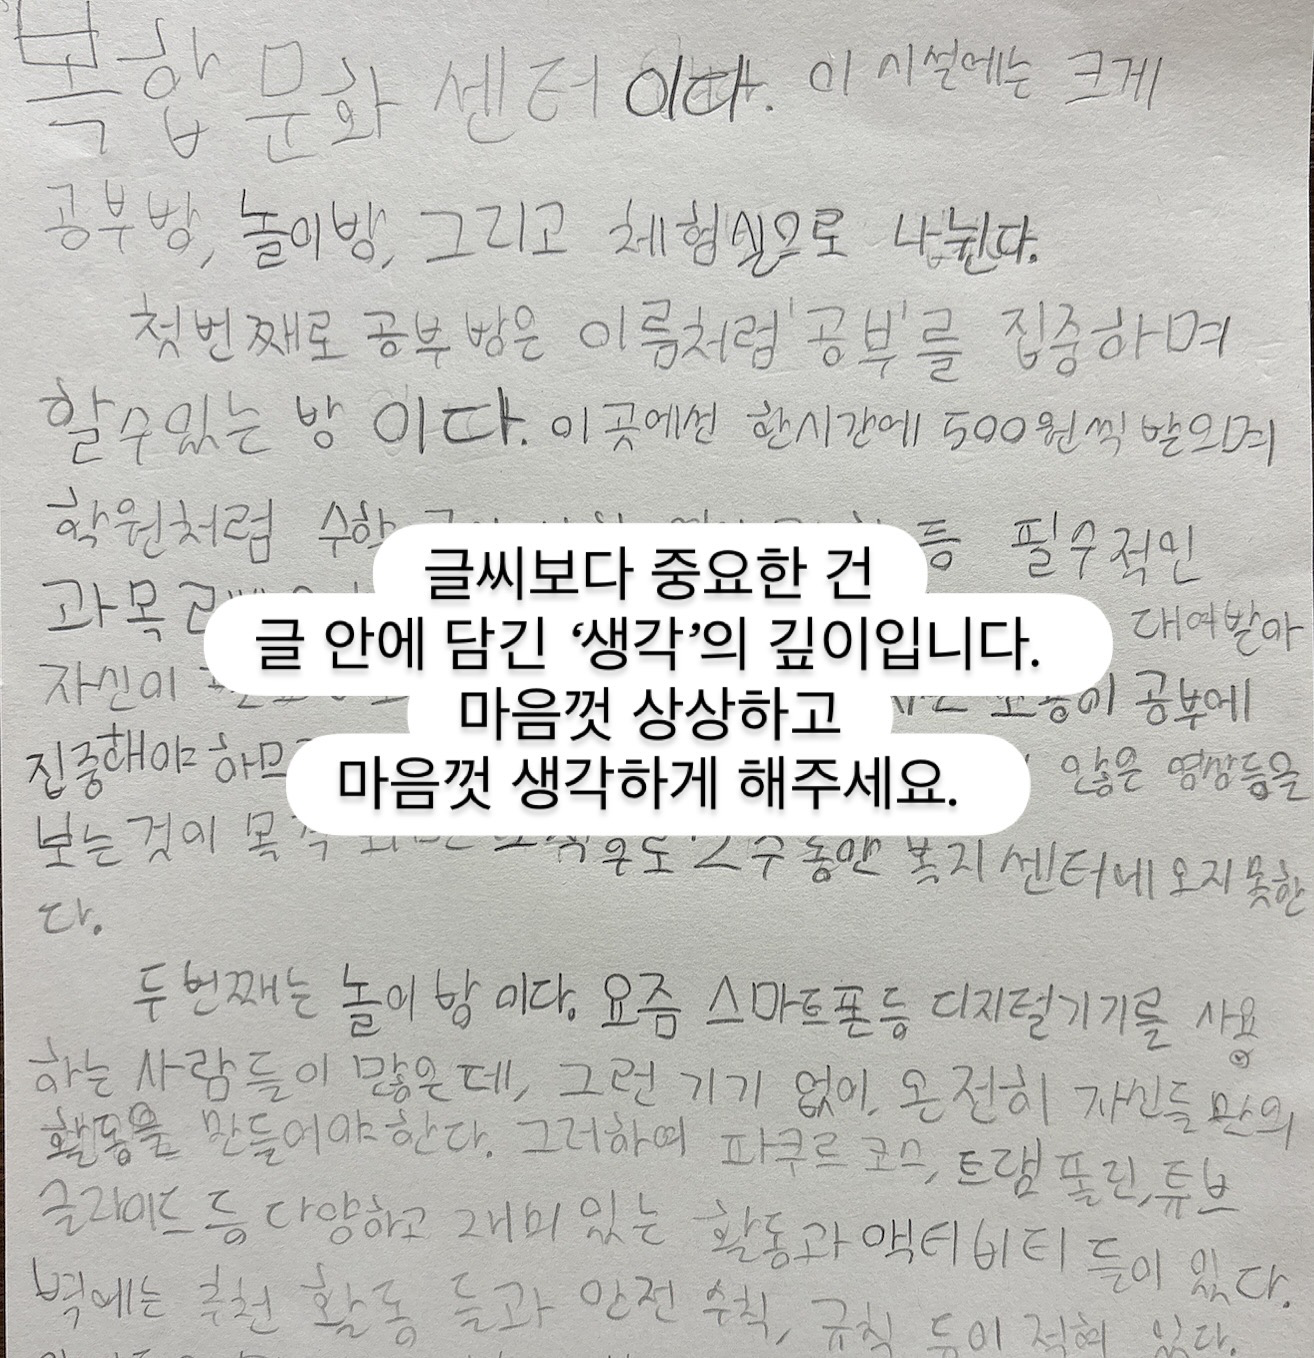 복합 문화 센터이다. 이 시설에는 크게
공부방, 놀이방, 그리고 체험실으로 나뉜다.
첫번째로 공부 방은 이름처럼 '공부'를 집중하며
할수있는 방 이다. 이곳에선 한시간에 500원씩 받으며
학원처럼 수학 등 필수적인
과목 대여받아
자신이 공부에
집중해야 하므로 않은 영상등을
보는것이 목격 2주동안 복지센터에 오지못한
다.
글씨보다 중요한 건
글 안에 담긴 ‘생각’의 깊이입니다.
마음껏 상상하고
마음껏 생각하게 해주세요.
두번째는 놀이 방 이다. 요즘 스마트폰등 디지털기기를 사용
하는 사람들이 많은데, 그런 기기 없이, 온전히 자신들만의
활동을 만들어야한다. 그러하여 파쿠르 코스, 트램폴린, 튜브
글라이드 등 다양하고 재미 있는 활동과 액티비티 들이 있다.
벽에는 추천 활동 들과 안전 수칙, 규칙 등이 적혀 있다.